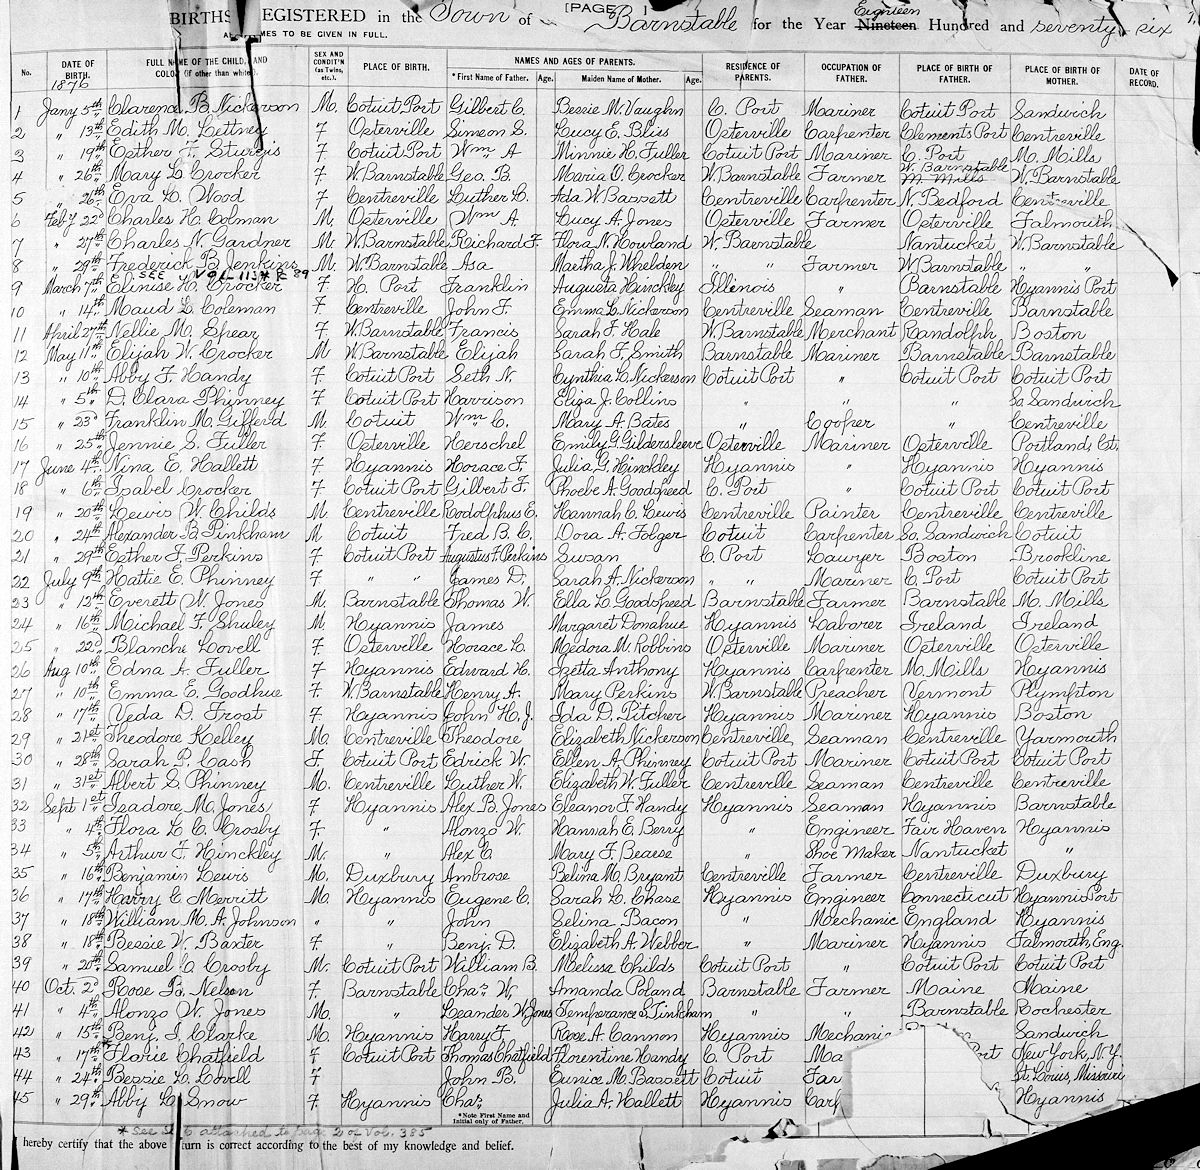 [PAGE 1
BIRTHS REGISTERED in the Town of Barnstable for the Year Eighteen Nineteen Hundred and seventy six
MES TO BE GIVEN IN FULL.
No. DATE OF BIRTH. FULL NAME OF THE CHILD, AND COLOR (if other than white). SEX AND CONDIT'N (as Twins, etc.). PLACE OF BIRTH. NAMES AND AGES OF PARENTS. RESIDENCE OF PARENTS. OCCUPATION OF FATHER. PLACE OF BIRTH OF FATHER. PLACE OF BIRTH OF MOTHER. DATE OF RECORD.
1876 * First Name of Father. Age. Maiden Name of Mother. Age.
1 Jany 5th Clarence B. Nickerson M. Cotuit Port Gilbert C. Bessie M. Vaughn C. Port Mariner Cotuit Port Sandwich
2 " 13th Edith M. Lettney F Osterville Simeon S. Lucy E. Bliss Osterville Carpenter Clements Port Centreville
3 " 19th Esther F. Sturgis F Cotuit Port Wm A Minnie H. Fuller Cotuit Port Mariner C. Port M. Mills
4 " 26th Mary L. Crocker F W. Barnstable Geo. B. Maria O. Crocker W. Barnstable Farmer W. Barnstable M. Mills W. Barnstable
5 " 26th Eva L. Wood F Centreville Luther L. Ada W. Bassett Centreville Carpenter N. Bedford Centreville
6 Feby 22d Charles H. Colman M. Osterville Wm A. Lucy A. Jones Osterville Farmer Osterville Falmouth
7 " 27th Charles N. Gardner M. W. Barnstable Richard F. Flora N. Howland W. Barnstable Nantucket W. Barnstable
8 " 29th Frederick B. Jenkins M. W. Barnstable Asa Martha J. Whelden " " Farmer W. Barnstable " "
SEE VOL 113 89
9 March 7th Elinise H. Crocker F H. Port Franklin Augusta Hinckley Illenois " Barnstable Hyannis Port
10 " 14th Maud L. Coleman F Centreville John F. Emma L. Nickerson Centreville Seaman Centreville Barnstable
11 April 27th Nellie M. Spear F W. Barnstable Francis Sarah F. Hale W. Barnstable Merchant Randolph Boston
12 May 11th Elijah W. Crocker M W. Barnstable Elijah Sarah F. Smith Barnstable Mariner Barnstable Barnstable
13 " 10th Abby F. Handy F Cotuit Port Seth N. Cynthia L. Nickerson Cotuit Port " Cotuit Port Cotuit Port
14 " 5th D. Clara Phinney F Cotuit Port Harrison Eliza J. Collins " " " So. Sandwich
15 " 23d Franklin M. Gifferd M. Cotuit Wm C. Mary A. Bates " Cooper " Centreville
16 " 25th Jennie S. Fuller F Osterville Herschel Emily G. Gildersleeve Osterville Mariner Osterville Portland, Ct.
17 June 4th Nina E. Hallett F Hyannis Horace F. Julia G. Hinckley Hyannis " Hyannis Hyannis
18 " 6th Isabel Crocker F Cotuit Port Gilbert F. Phoebe A. Goodspeed C. Port " Cotuit Port Cotuit Port
19 " 20th Lewis W. Childs M Centreville Rodolphus E. Hannah C. Lewis Centreville Painter Centreville Centreville
20 " 24th Alexander B. Pinkham M Cotuit Fred B. C. Dora A. Folger Cotuit Carpenter So. Sandwich Cotuit
21 " 29th Esther F. Perkins F Cotuit Port Augustus F. Perkins Susan C. Port Lawyer Boston Brookline
22 July 9th Hattie E. Phinney F " " James D. Sarah A. Nickerson " " Mariner C. Port Cotuit Port
23 " 12th Everett W. Jones M. Barnstable Thomas W. Ella L. Goodspeed Barnstable Farmer Barnstable M. Mills
24 " 16th Michael F. Shuley M Hyannis James Margaret Donahue Hyannis Laborer Ireland Ireland
25 " 22d Blanche Lovell F Osterville Horace L. Medora M. Robbins Osterville Mariner Osterville Osterville
26 Aug 10th Edna A. Fuller F Hyannis Edward H. Izetta Anthony Hyannis Carpenter M. Mills Hyannis
27 " 10th Emma E. Goodhue F. W. Barnstable Henry A. Mary Perkins W. Barnstable Preacher Vermont Plympton
28 " 17th Veda D. Frost F. Hyannis John H. J. Ida D. Pitcher Hyannis Mariner Hyannis Boston
29 " 21st Theodore Kelley M. Centreville Theodore Elizabeth Nickerson Centreville Seaman Centreville Yarmouth
30 " 28th Sarah P. Cash F. Cotuit Port Edrick W. Ellen A. Phinney Cotuit Port Mariner Cotuit Port Cotuit Port
31 " 31st Albert S. Phinney M. Centreville Luther W. Elizabeth W. Fuller Centreville Seaman Centreville Centreville
32 Sept 1st Isadore M. Jones F Hyannis Alex B. Jones Eleanor F. Handy Hyannis Seaman Hyannis Barnstable
33 " 4th Flora L. C. Crosby F. " Alonzo W. Hannah E. Berry " Engineer Fair Haven Hyannis
34 " 5th Arthur F. Hinckley M. " Alex C. Mary F. Bearse " Shoe Maker Nantucket "
35 " 16th Benjamin Lewis M. Duxbury Ambrose Belina M. Bryant Centreville Farmer Centreville Duxbury
36 " 17th Harry C. Merritt M. Hyannis Eugene C. Sarah L. Chase Hyannis Engineer Connecticut Hyannis Port
37 " 18th William M. A. Johnson " " John Selina Bacon " Mechanic England Hyannis
38 " 18th Bessie W. Baxter F. " Benj. D. Elizabeth A. Webber " Mariner Hyannis Falmouth, Eng.
39 " 20th Samuel C. Crosby M. Cotuit Port William B. Melissa Childs Cotuit Port " Cotuit Port Cotuit Port
40 Oct. 2d Rose B. Nelson F. Barnstable Chas. W. Amanda Poland Barnstable Farmer Maine Maine
41 " 4th Alonzo W. Jones M. " Leander W. Jones Temperance S. Tinkham " " Barnstable Rochester
42 " 15th Benj. I. Clarke M. Hyannis Harry F. Rose A. Cannon Hyannis Mechanic Sandwich
43 " 17th * Florie Chatfield F Cotuit Port Thomas Chatfield Florentine Handy C. Port Ma ort New York, N.Y.
44 " 24th Bessie L. Lovell F John B. Eunice M. Bassett Cotuit Far St. Louis, Missouri
45 " 29th Abby L. Snow F. Hyannis Chas. Julia A. Hallett Hyannis Carp Hyannis
*Note First Name and Initial only of Father.
* See attached to page 2 of Vol. 385
hereby certify that the above turn is correct according to the best of my knowledge and belief.